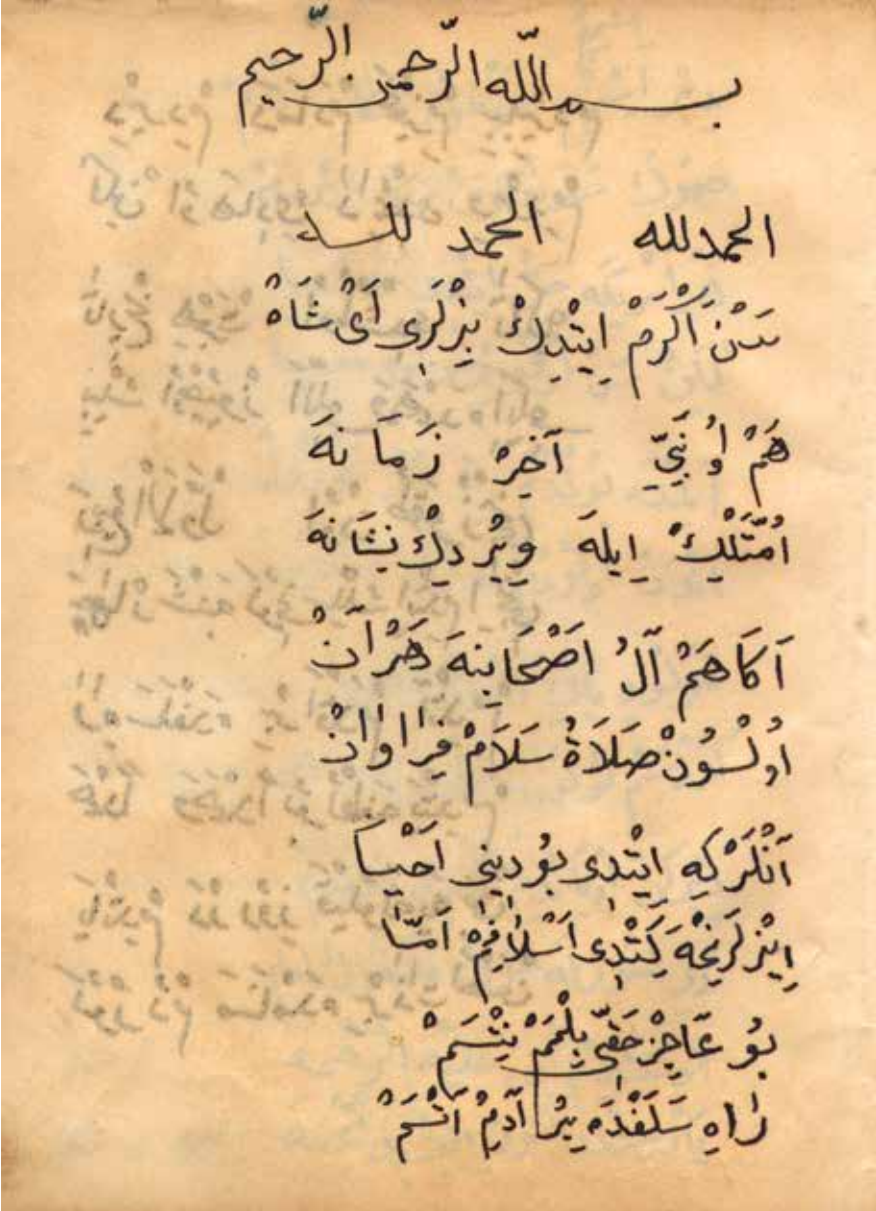 بسم اللّه الرّحمن الرّحيم
الحمد لله الحمد لله
سَنْ اَكْرَمْ اِيتْدِكْ بِزْلَرِى اَىْ شَاهْ
هَمْ اُو نَبِيِّ آخِرْ زَمَانَهَ
اُمَّتَلِيكْ اِيلَهَ وِيرْدِيكْ نِشَانَهَ
اَكَا هَمْ آلُ اَصْحَابِنَهَ هَرْ آنْ
اُولْسُونْ صَلَاةُ سَلَامْ فِرَاوَانْ
اَنْلَرْ كِهِ اِيتْدِى بُو دِينِى اَحْيَا
اِيزْلَرِنْجَهَ كِتْدِى اَسْلَافِمِ اَمَّا
بُو عَاجِزْ حَقِّى بِلْمَمْ نِيتْسَمْ
رَاهِ سَلَفْدَه بِرْ آدِمْ آتْسَمْ